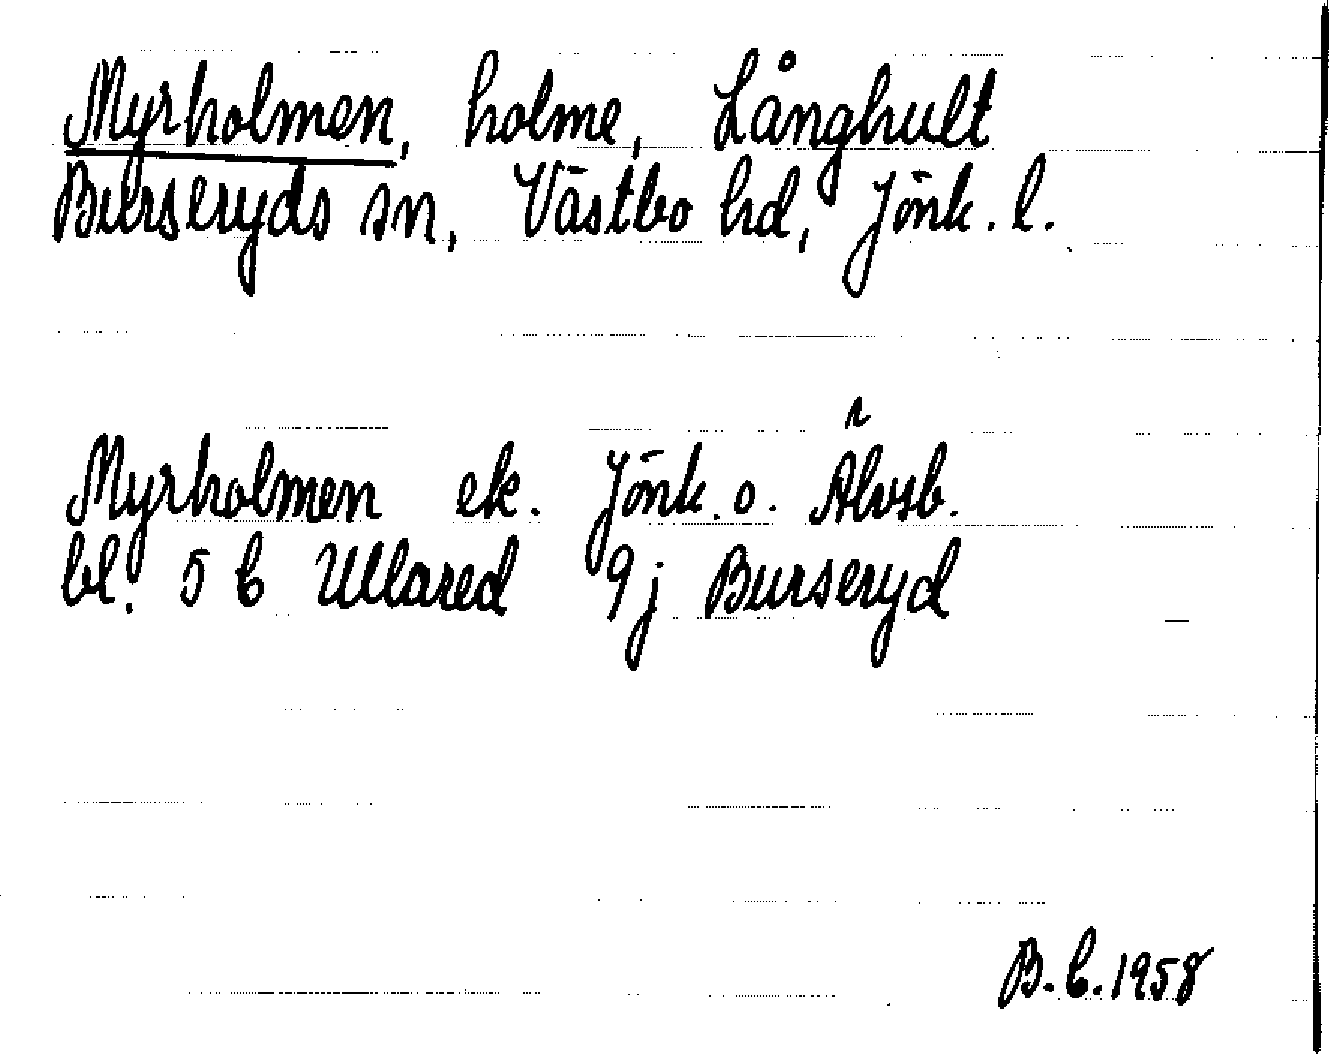 Myrholmen, holme, Långhult
Burseryds sn, Västbo hd, Jönk. l.
Myrholmen ek. Jönk. o. Älvsb.
bl. 5 C Ullared 9j Burseryd
B.C. 1958